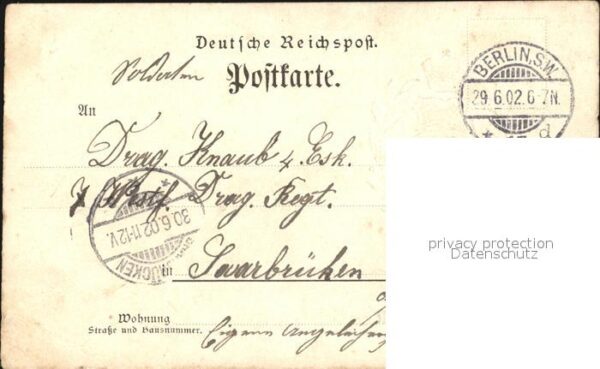 Deutsche Reichspost.
Postkarte.
BERLIN, S.W.
29.6.02.6-7N.
d
An
Drag. Knaub 4. Esk.
7. Westf. Drag. Regt.
30.6.02.11-12V.
BRÜCKEN
in Saarbrücken
privacy protection
Datenschutz
Wohnung
Straße und Hausnummer.
Eigene